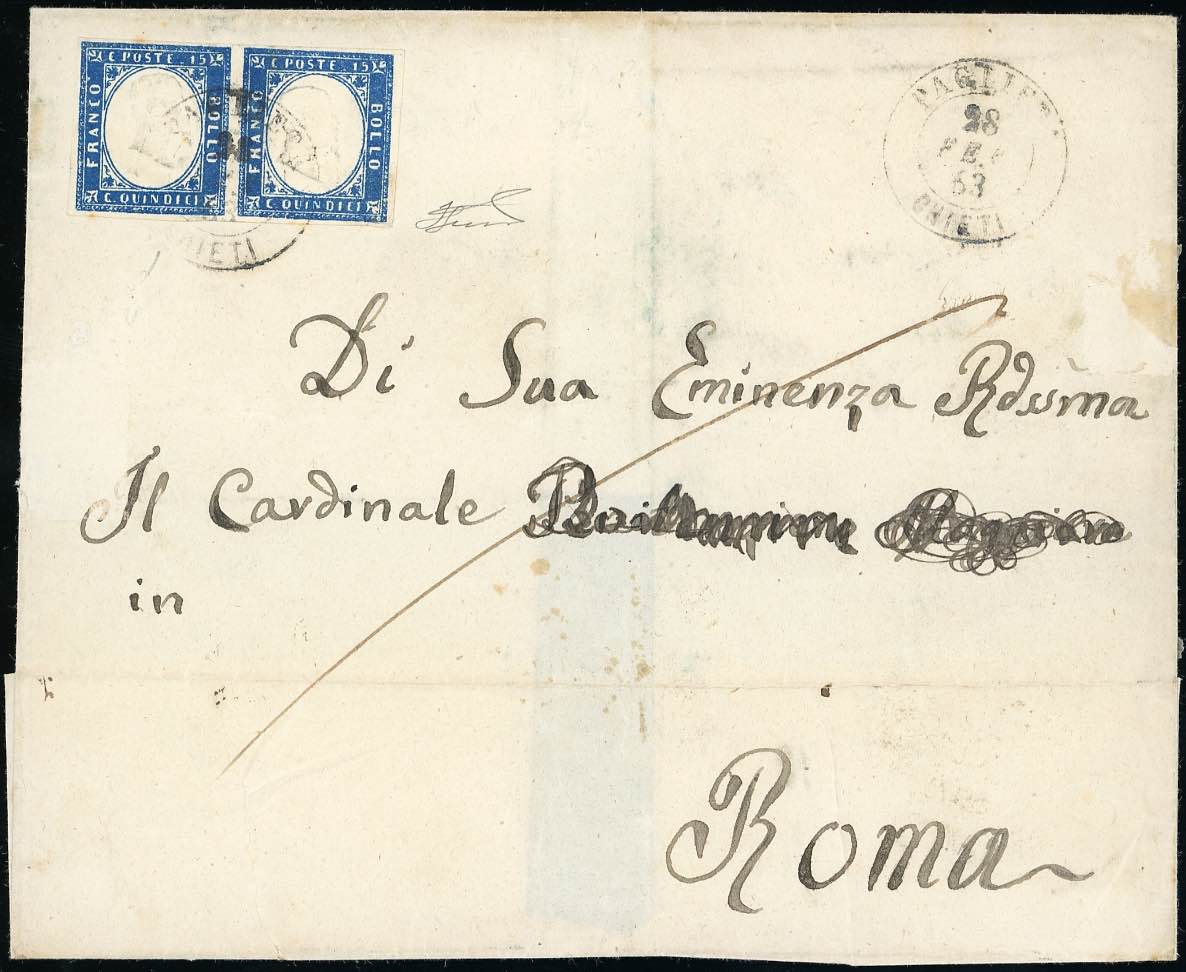 C POSTE 15 C POSTE 15
FRANCO BOLLO FRANCO BOLLO
C. QUINDICI C. QUINDICI
CHIETI
PAGLIETA
28
FEB
63
CHIETI
Di Sua Eminenza Rdssma
Il Cardinale
in
Roma